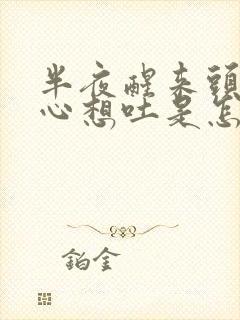 半夜醒来頭
心想吐是怎
鉑金